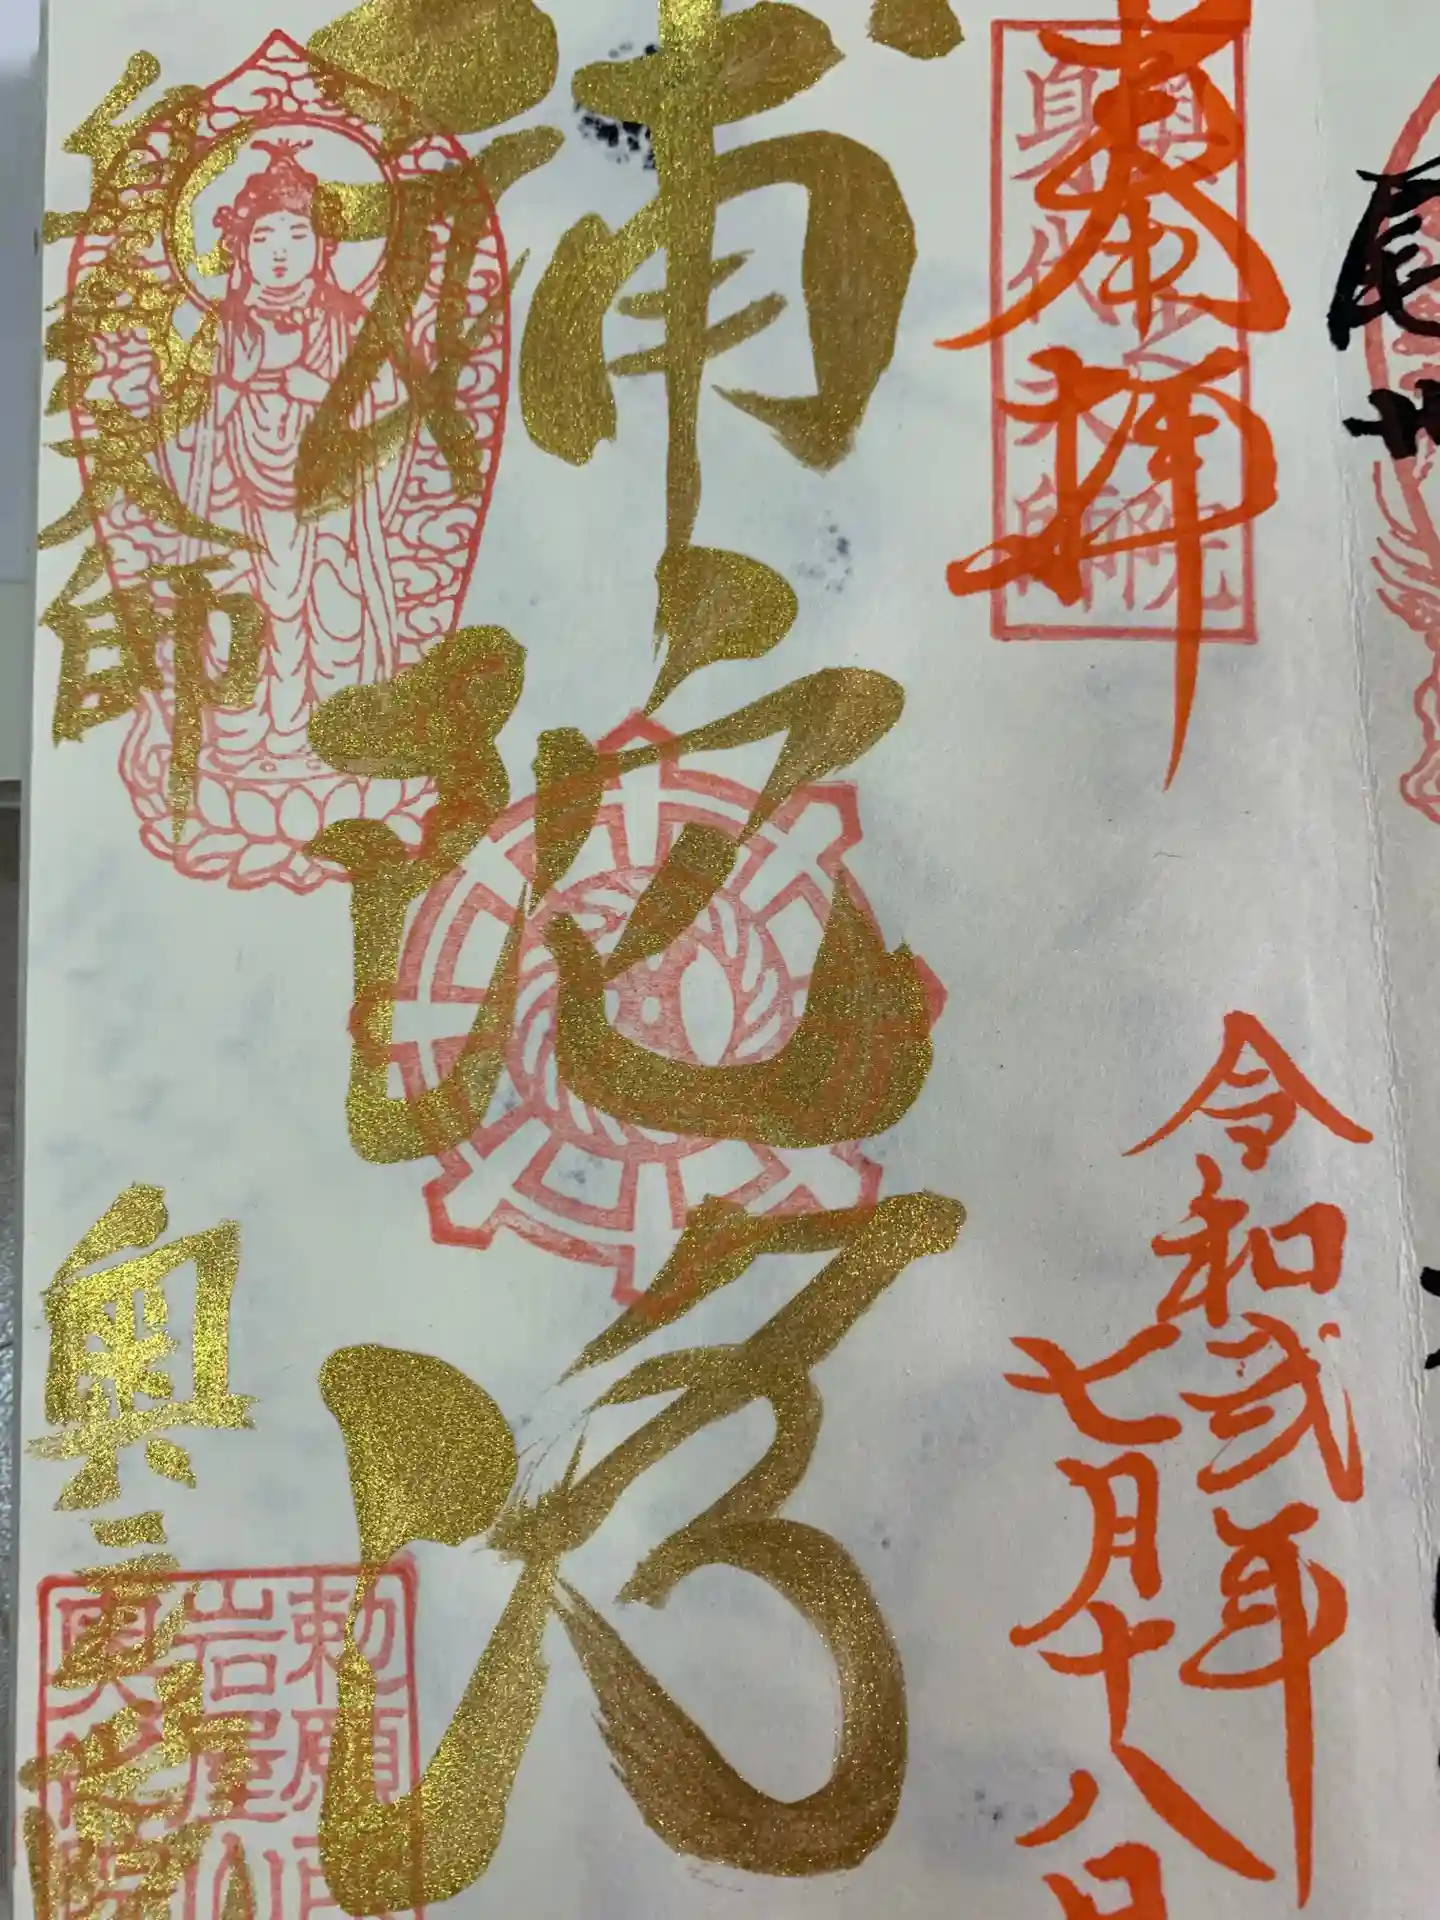 奉拝
奥之院
身代大師
令和弐年
七月十八日
補陀洛
身代大師
勅願
岩屋山